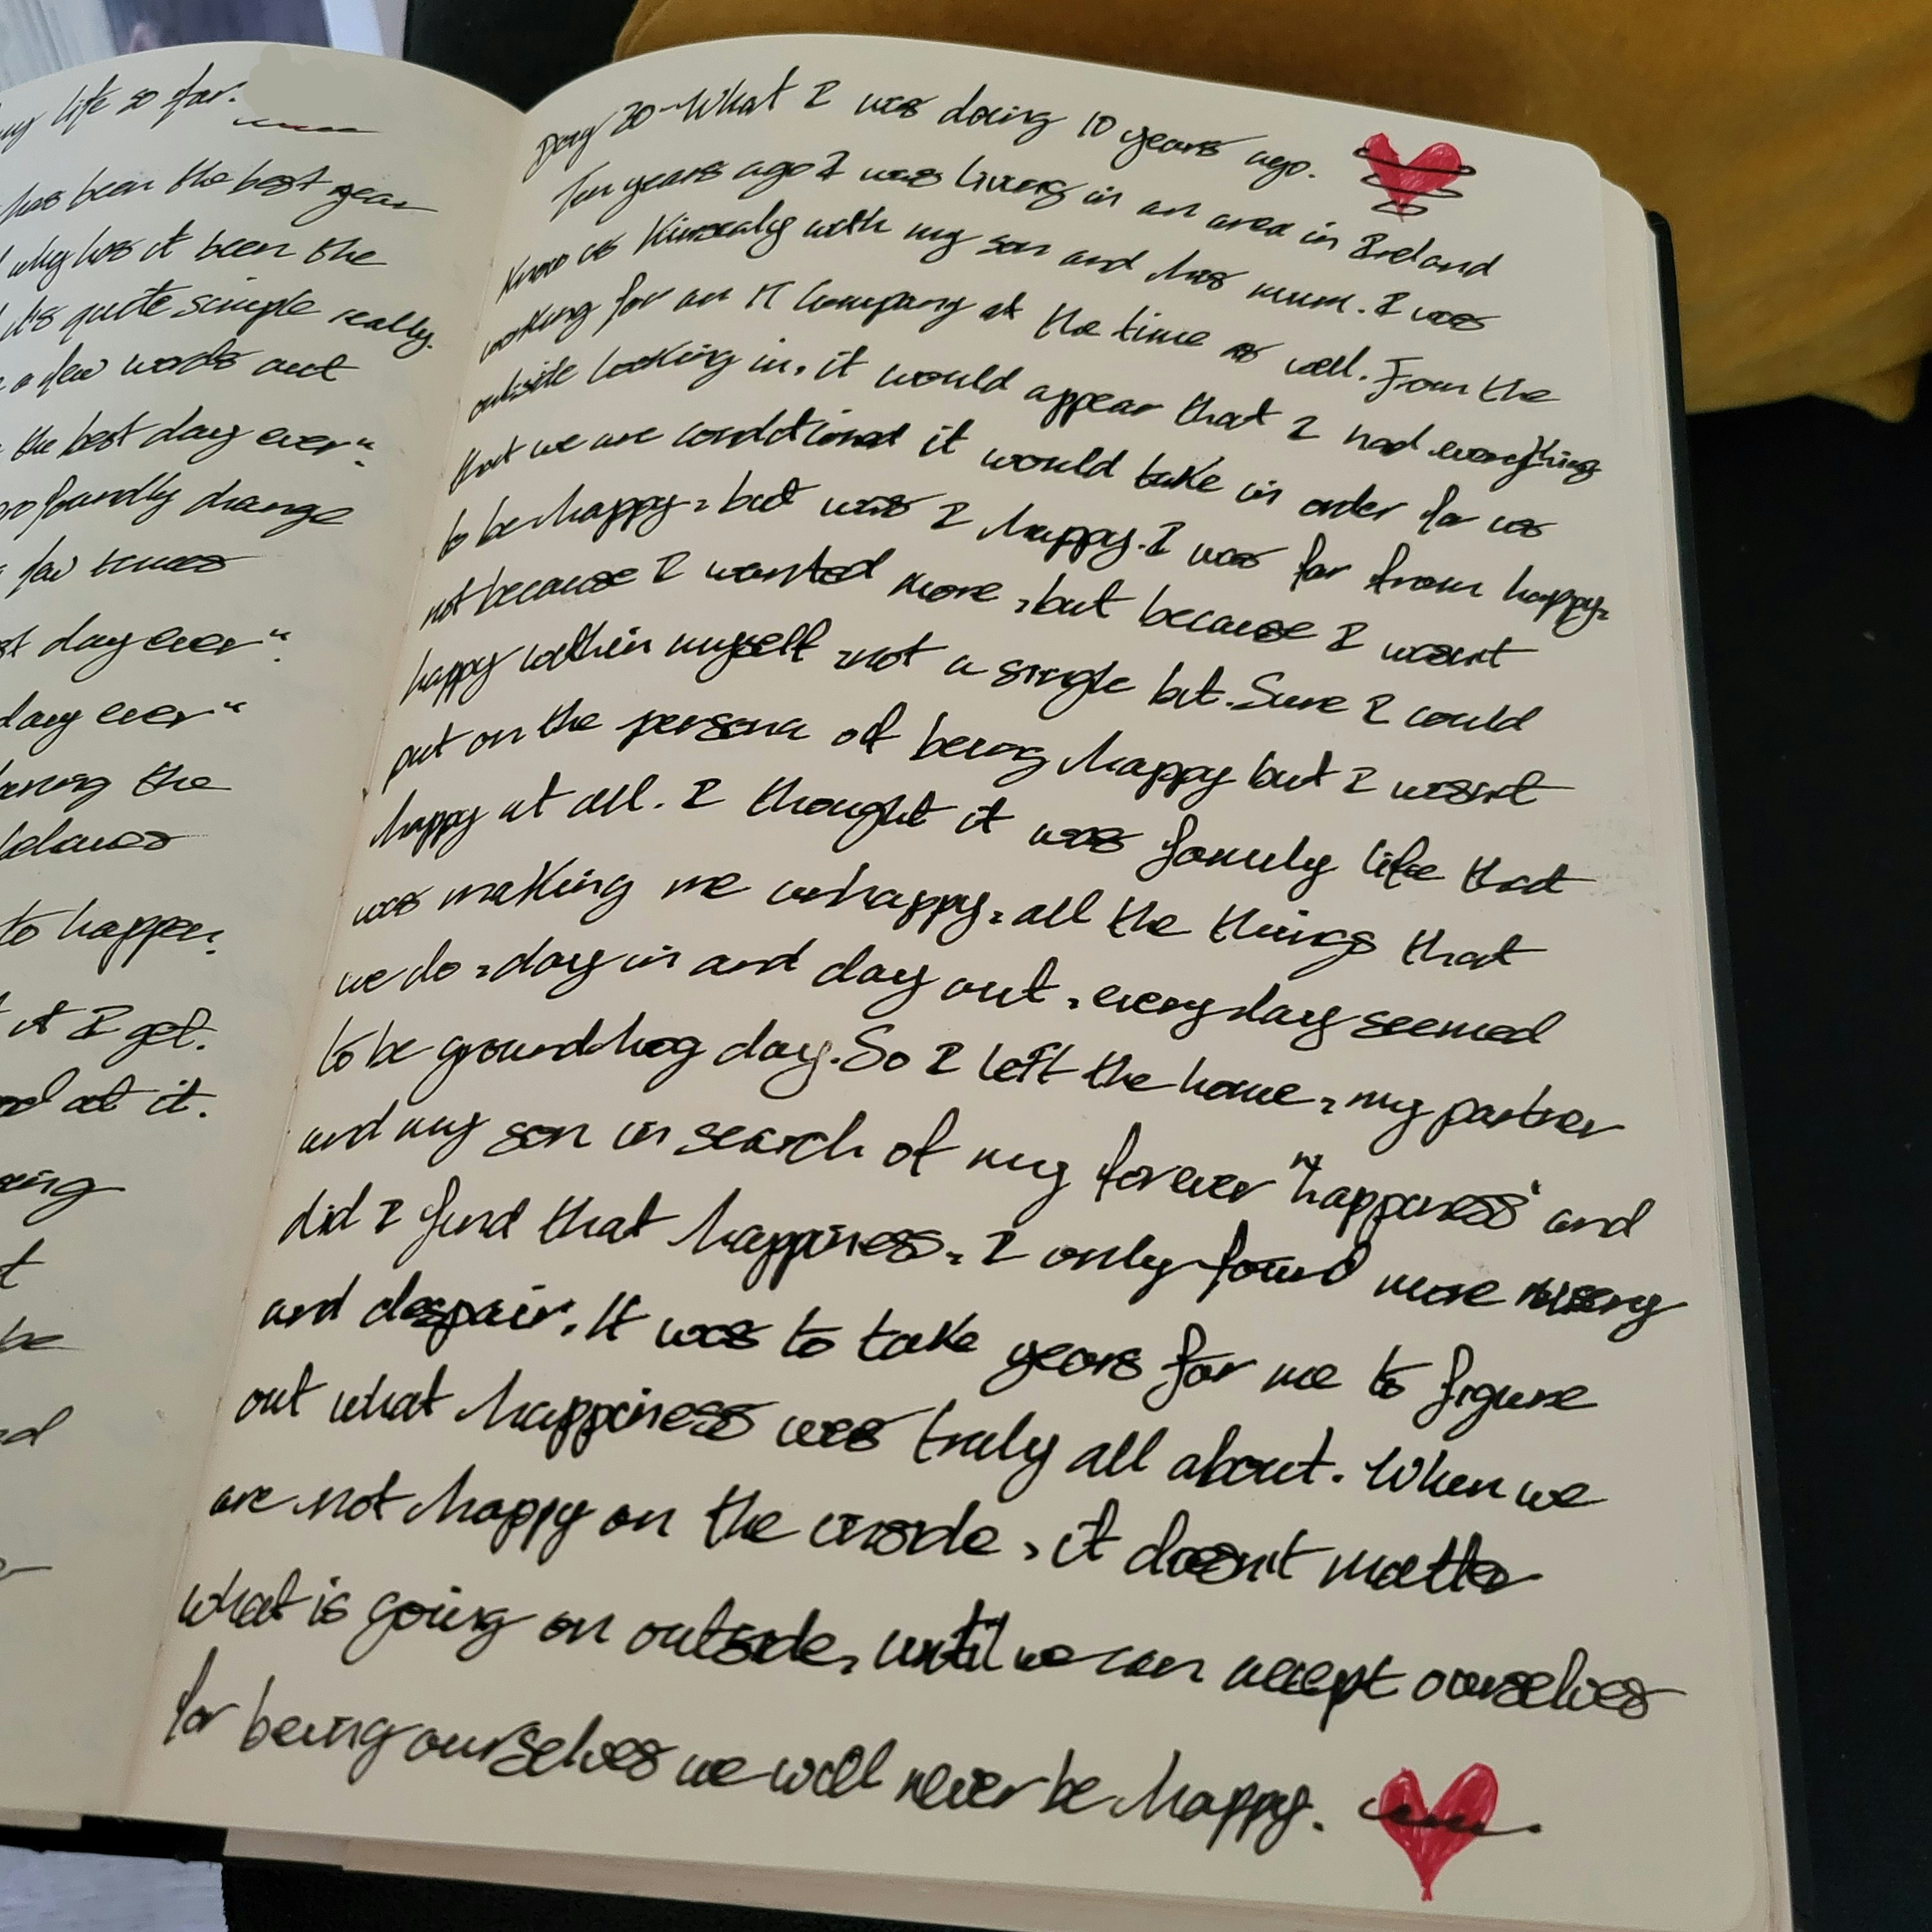 my life so far.
has been the best year
why has it been the
it's quite simple really.
a few words and
the best day ever".
profoundly change
few times
day ever".
day ever"
the
to happen.
it I get.
at it.
be
Day 20 - What I was doing 10 years ago.
Ten years ago I was living in an area in Ireland
know as Kinsealy with my son and his mum. I was
working for an IT Company at the time as well. From the
outside looking in, it would appear that I had everything
that we are conditioned it would take in order for us
to be happy, but was I happy. I was far from happy,
not because I wanted more, but because I wasn't
happy within myself, not a single bit. Sure I could
put on the persona of being happy but I wasn't
happy at all. I thought it was family life that
was making me unhappy, all the things that
we do, day in and day out, everyday seemed
to be groundhog day. So I left the home, my partner
and my son in search of my forever "happiness" and
did I find that happiness, I only found more misery
and despair. It was to take years for me to figure
out what happiness was truly all about. When we
are not happy on the inside, it doesn't matter
what is going on outside, until we can accept ourselves
for being ourselves we will never be happy.